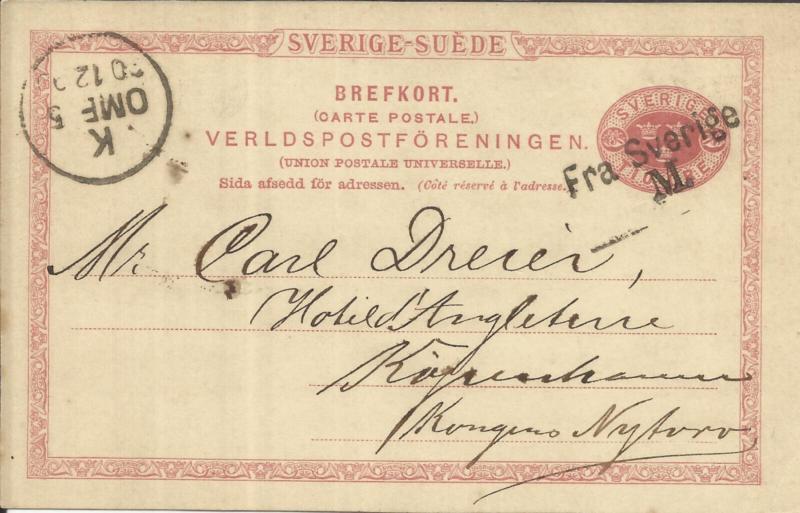 SVERIGE-SUÈDE
BREFKORT.
(CARTE POSTALE.)
VERLDSPOSTFÖRENINGEN.
(UNION POSTALE UNIVERSELLE.)
Sida afsedd för adressen. (Côté réservé à l'adresse.)
SVERIGE
Fra Sverige
M.
K
OMF 5
12
Mr. Carl Dreier,
Hotel d'Angleterre
Kjøbenhavn
Kongens Nytorv